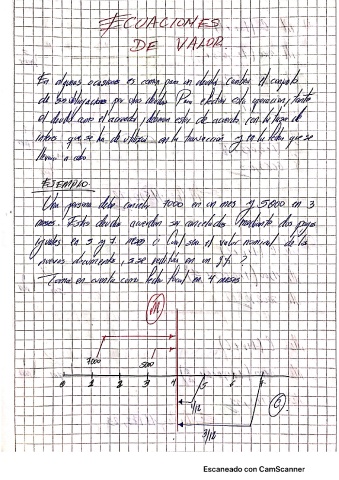 ECUACIONES
DE VALOR.
En algunas ocasiones es común para un deudor cambiar el conjunto
de sus obligaciones por otra deuda. Para efectuar esta operación, tanto
el deudor como el acreedor deberán estar de acuerdo con la tasa de
interés que se ha de utilizar en la transacción y en la fecha que se
llevará a cabo
EJEMPLO.
Una persona debe cancelar 7000 en un mes y 5000 en 3
meses. Estas deudas acuerdan ser canceladas mediante dos pagos
iguales en 5 y 7 meses ¿Cual sera el valor nominal de los
nuevos documentos, si se en un 9%?
Tome en cuenta como fecha focal mes 4 meses
M
7000 5000
0 1 2 3 4 5 6
1/12
3/12
Escaneado con CamScanner